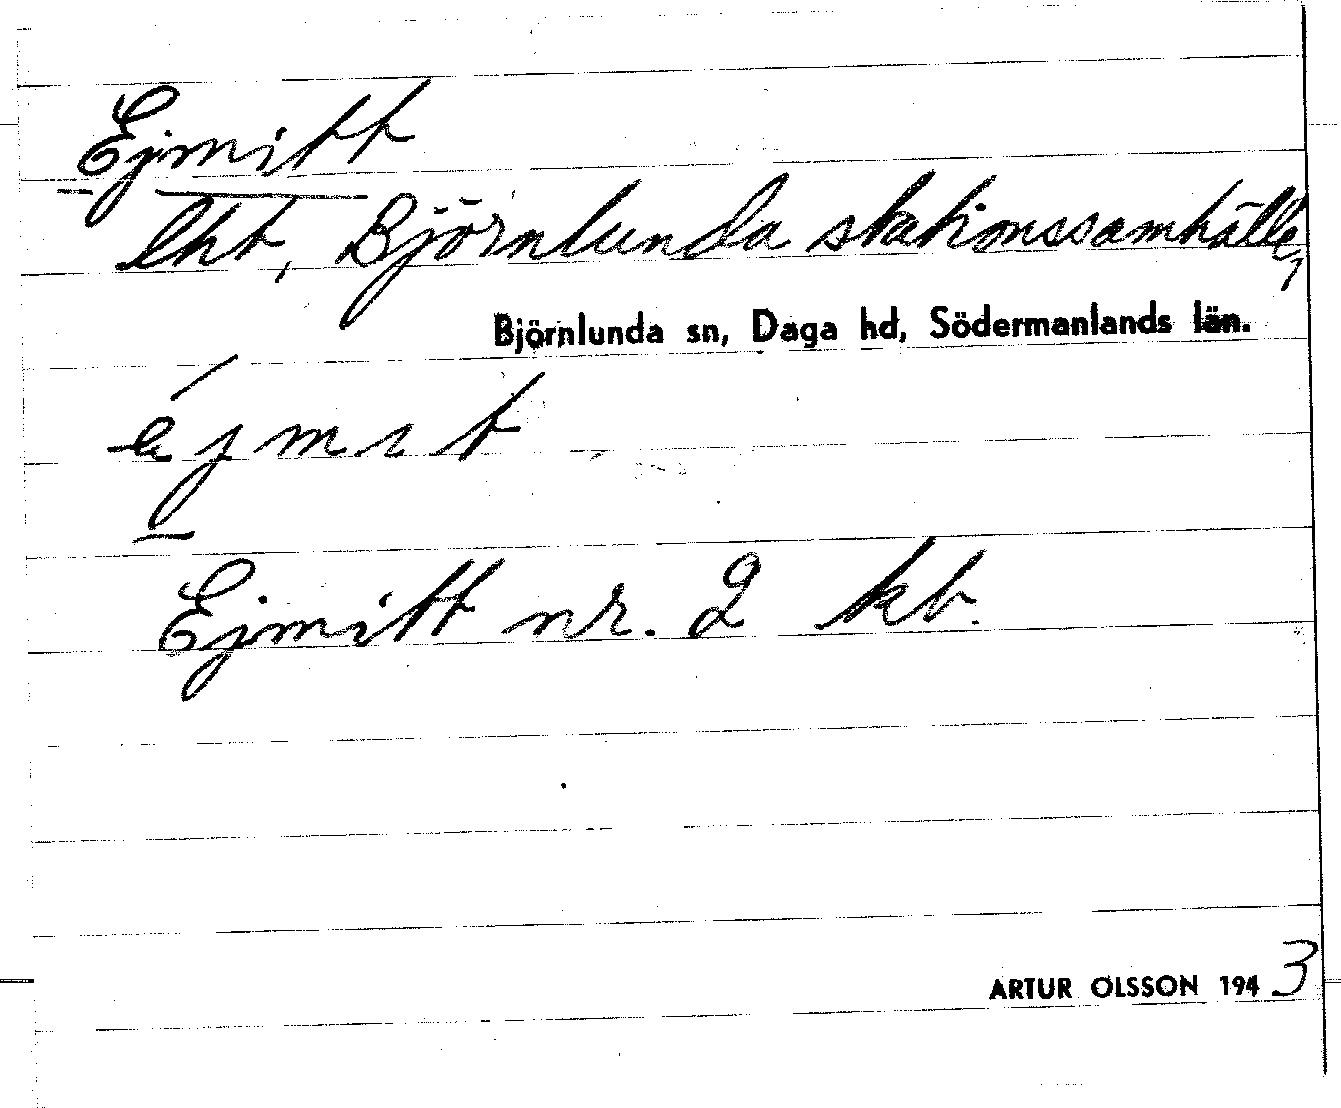 Ejmitt
lht, Björnlunda stationssamhälle,
Björnlunda sn, Daga hd, Södermanlands län.
éjmıt
Ejmitt nr. 2 kb.
ARTUR OLSSON 1943